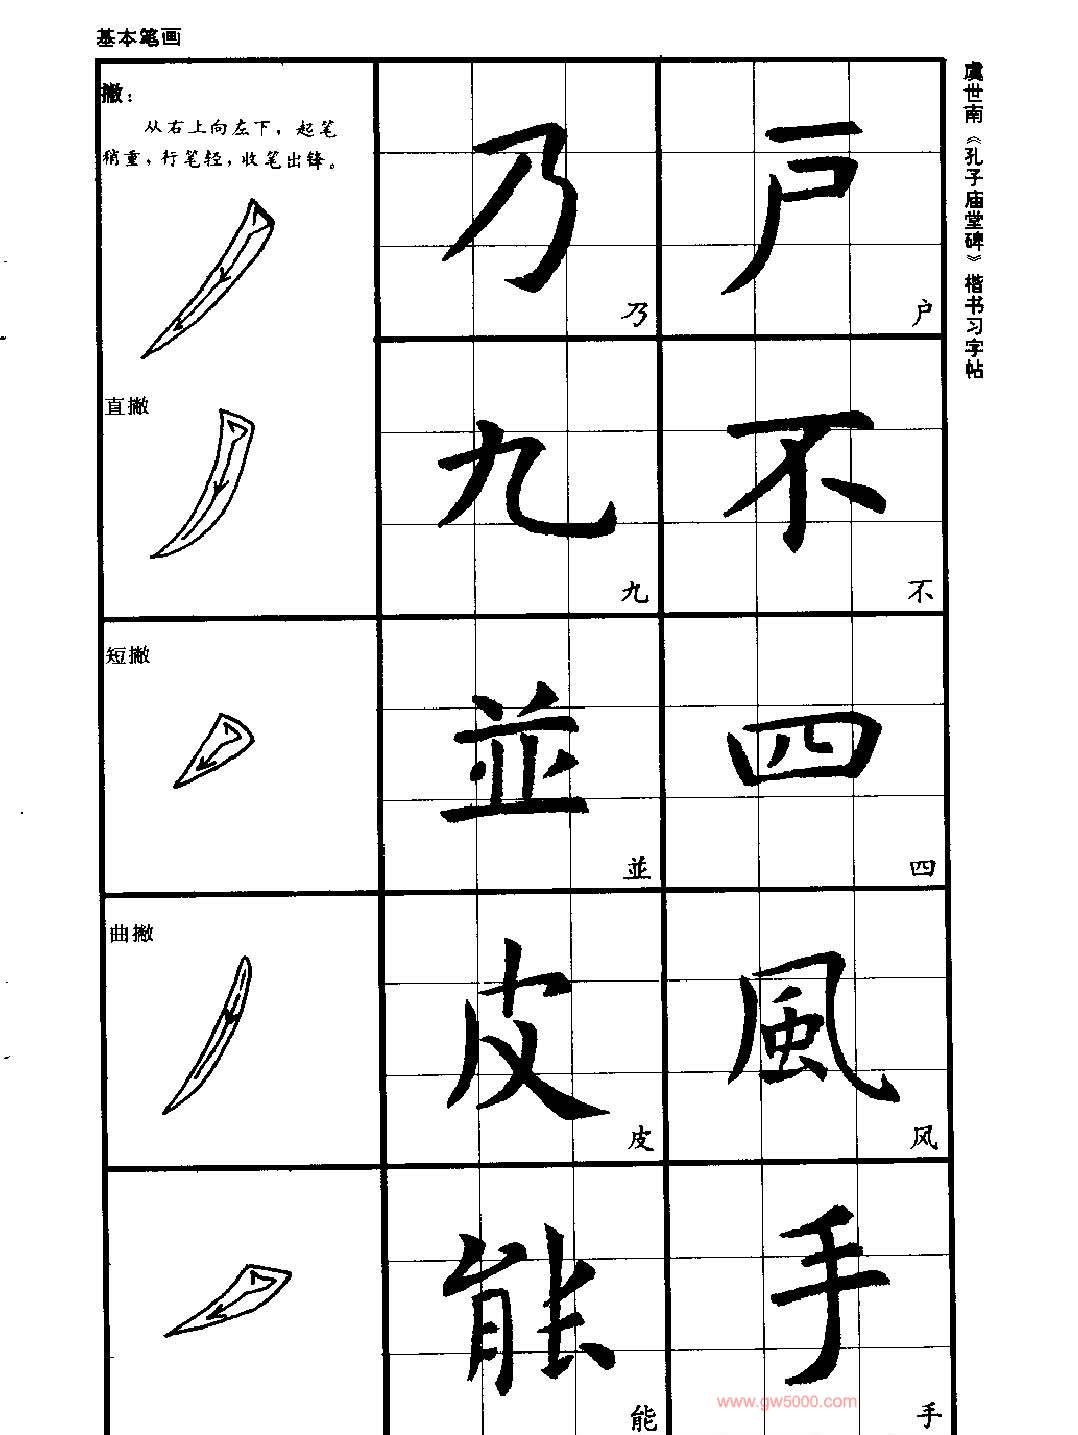 基本笔画
虞世南《孔子庙堂碑》楷书习字帖
撇：
从右上向左下，起笔
稍重，行笔轻，收笔出锋。
乃
乃
户
户
直撇
九
九
不
不
短撇
並
並
四
四
曲撇
皮
皮
風
风
能
能
手
手
www.gw5000.com